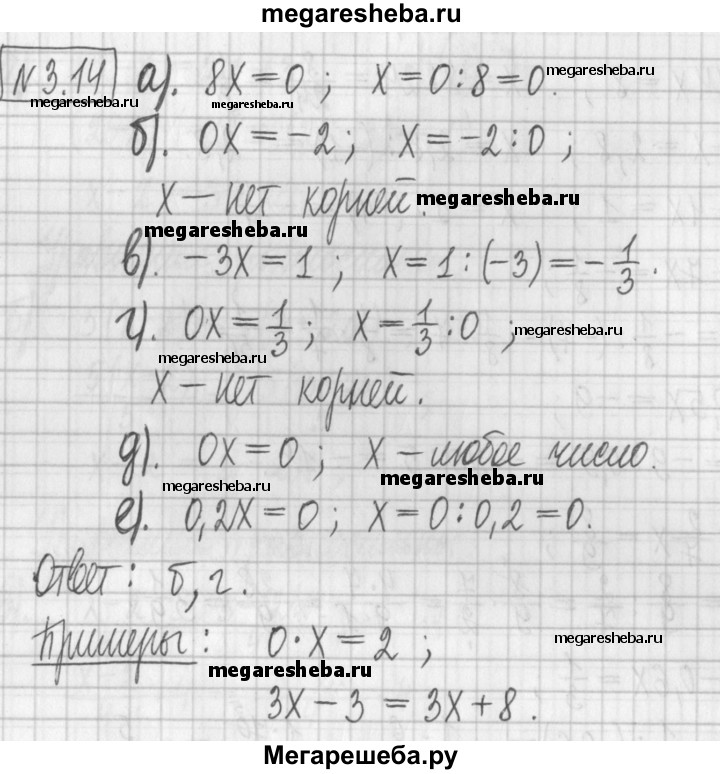 megaresheba.ru
N 3.14 а). 8x = 0 ; x = 0 : 8 = 0.
megaresheba.ru megaresheba.ru megaresheba.ru
б). 0x = -2 ; x = -2 : 0 ;
x - нет корней.
megaresheba.ru
megaresheba.ru
в). -3x = 1 ; x = 1 : (-3) = -1/3.
г). 0x = 1/3 ; x = 1/3 : 0 ;
megaresheba.ru
megaresheba.ru
x - нет корней.
д). 0x = 0 ; x - любое число.
megaresheba.ru megaresheba.ru
е). 0,2x = 0 ; x = 0 : 0,2 = 0.
Ответ: б, г.
Примеры : 0·x = 2 ;
megaresheba.ru
megaresheba.ru
3x - 3 = 3x + 8 .
Мегарешеба.ру